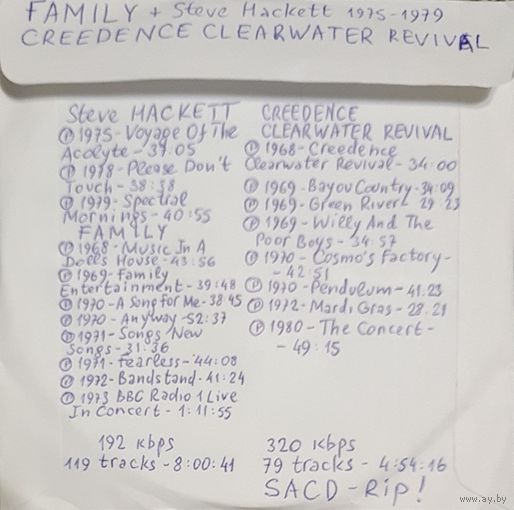 FAMILY + Steve Hackett 1975-1979
CREEDENCE CLEARWATER REVIVAL
Steve HACKETT
Ⓟ 1975-Voyage Of The
Acolyte - 39:05
Ⓟ 1978-Please Don't
Touch - 38:38
Ⓟ 1979-Spectral
Mornings - 40:55
FAMILY
Ⓟ 1968-Music In A
Dolls House - 43:56
Ⓟ 1969-Family
Entertainment - 39:48
Ⓟ 1970-A Song For Me - 38:45
Ⓟ 1970-Anyway - 52:37
Ⓟ 1971-Songs New
Songs - 31:36
Ⓟ 1971-Fearless - 44:08
Ⓟ 1972-Bandstand - 41:24
Ⓟ 1973 BBC Radio 1 Live
In Concert - 1:11:55
192 kbps
119 tracks - 8:00:41
CREEDENCE
CLEARWATER REVIVAL
Ⓟ 1968-Creedence
Clearwater Revival - 34:00
Ⓟ 1969-Bayou Country - 34:09
Ⓟ 1969-Green River 29:23
Ⓟ 1969-Willy And The
Poor Boys - 34:57
Ⓟ 1970-Cosmo's Factory -
- 42:51
Ⓟ 1970-Pendulum - 41:23
Ⓟ 1972-Mardi Gras - 28:21
Ⓟ 1980-The Concert -
- 49:15
320 kbps
79 tracks - 4:54:16
SACD-Rip!
www.ay.by